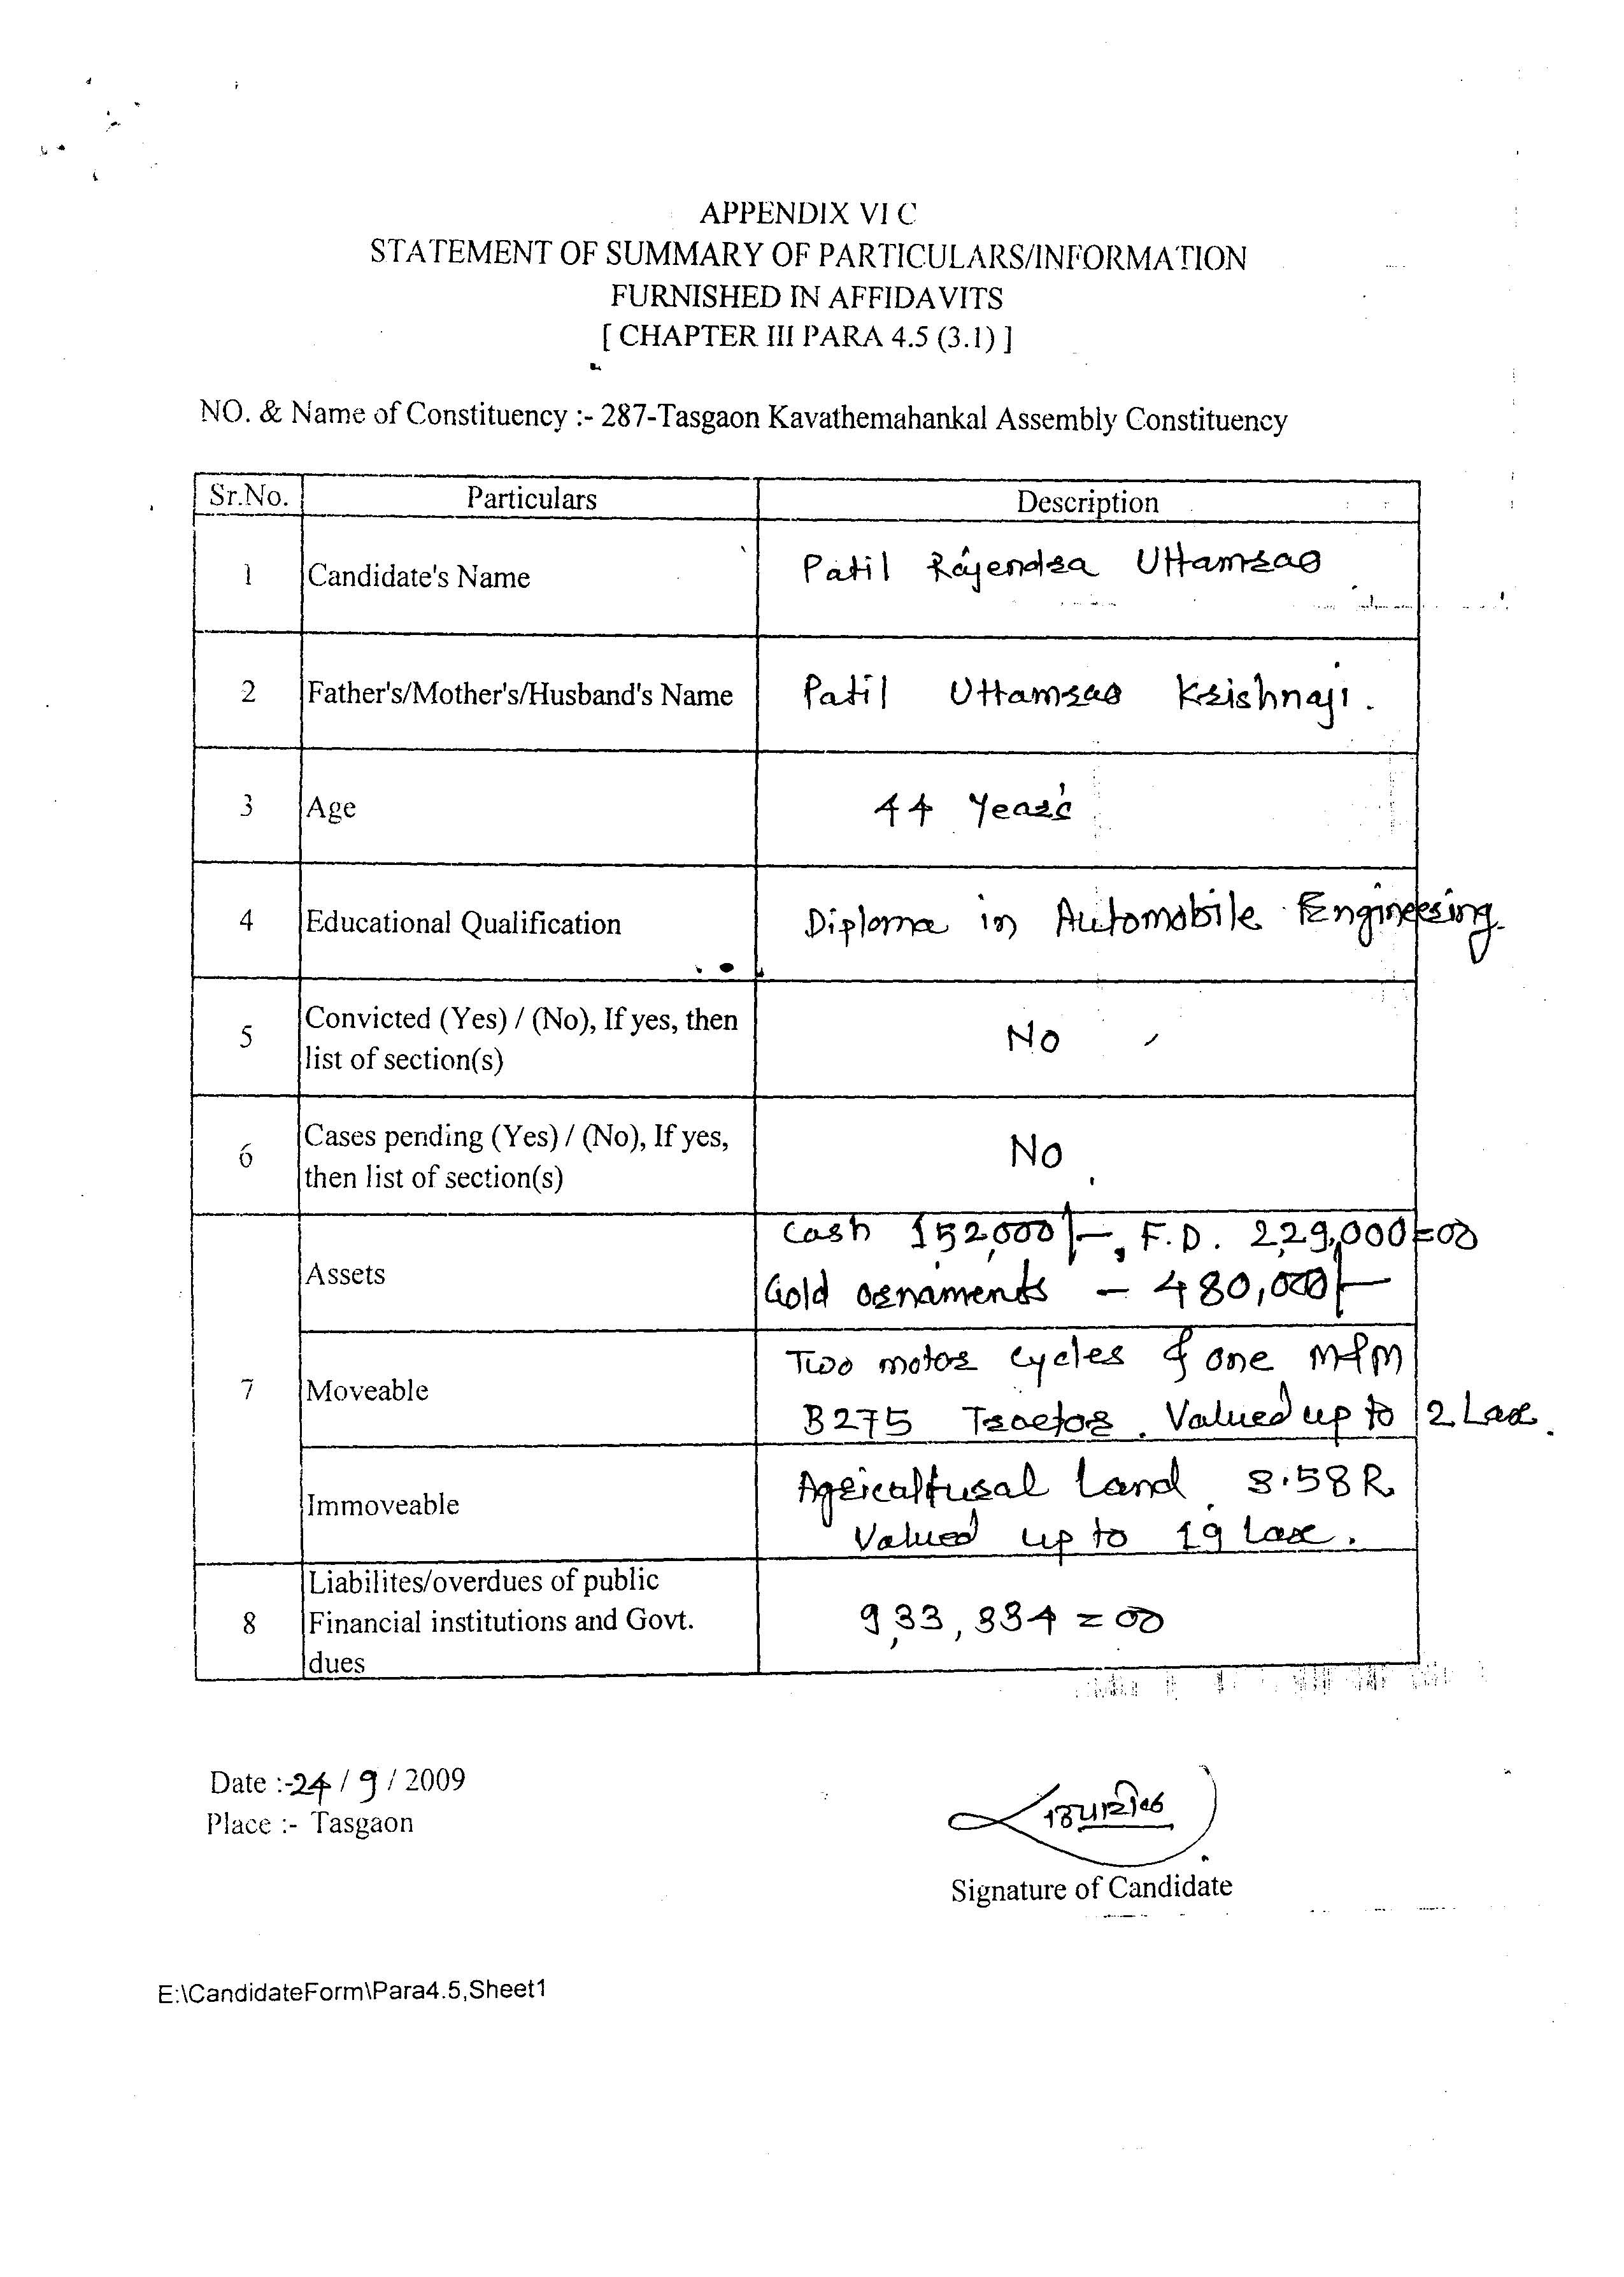 APPENDIX VI C
STATEMENT OF SUMMARY OF PARTICULARS/INFORMATION
FURNISHED IN AFFIDAVITS
[ CHAPTER III PARA 4.5 (3.1) ]
NO. & Name of Constituency :- 287-Tasgaon Kavathemahankal Assembly Constituency
Sr.No. Particulars Description
1 Candidate's Name Patil Rajendra Uttamrao
2 Father's/Mother's/Husband's Name Patil Uttamrao Krishnaji.
3 Age 44 Years
4 Educational Qualification Diploma in Automobile Engineering.
5 Convicted (Yes) / (No), If yes, then
list of section(s)
No
6 Cases pending (Yes) / (No), If yes,
then list of section(s)
No
7
Assets
Cash 152,000/-, F.D. 2,29,000=00
Gold ornaments - 480,000/-
Moveable
Two motor cycles & one M&M
B275 Tractor. Valued up to 2 Lac.
Immoveable
Agricultural Land 3.58R
Valued up to 19 Lac.
8
Liabilites/overdues of public
Financial institutions and Govt.
dues
9,33,334=00
Date :-24 / 9 / 2009
Place :- Tasgaon
Signature of Candidate
E:\CandidateForm\Para4.5,Sheet1